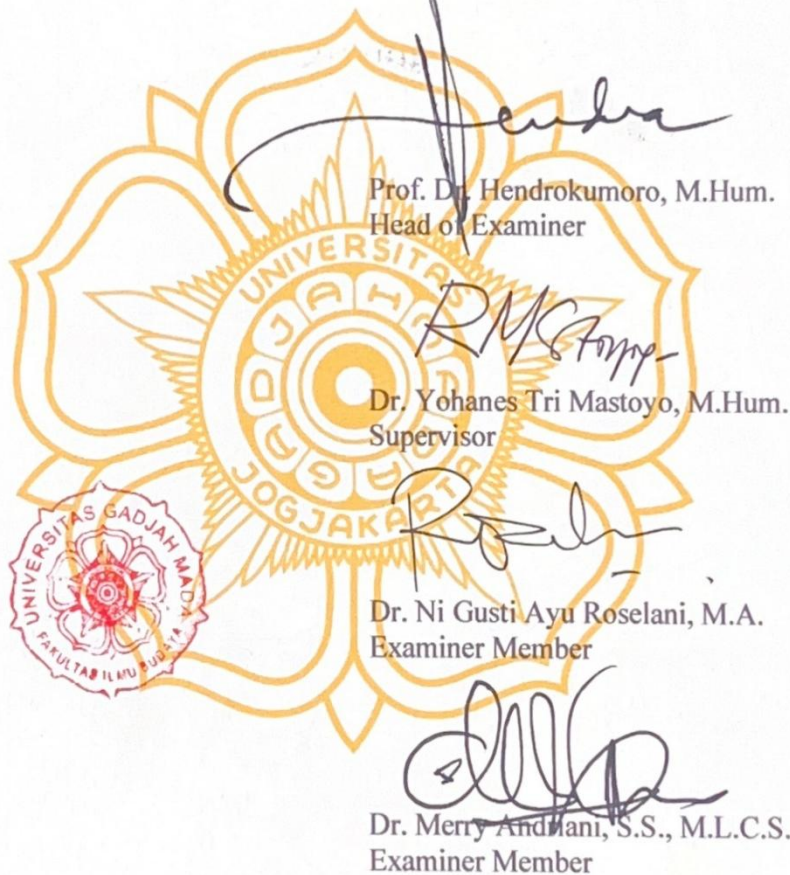 Prof. Dr. Hendrokumoro, M.Hum.
Head of Examiner
UNIVERSITAS
GADJAH MADA
JOGJAKARTA
Dr. Yohanes Tri Mastoyo, M.Hum.
Supervisor
UNIVERSITAS GADJAH MADA
FAKULTAS ILMU BUDAYA
Dr. Ni Gusti Ayu Roselani, M.A.
Examiner Member
Dr. Merry Andriani, S.S., M.L.C.S.
Examiner Member